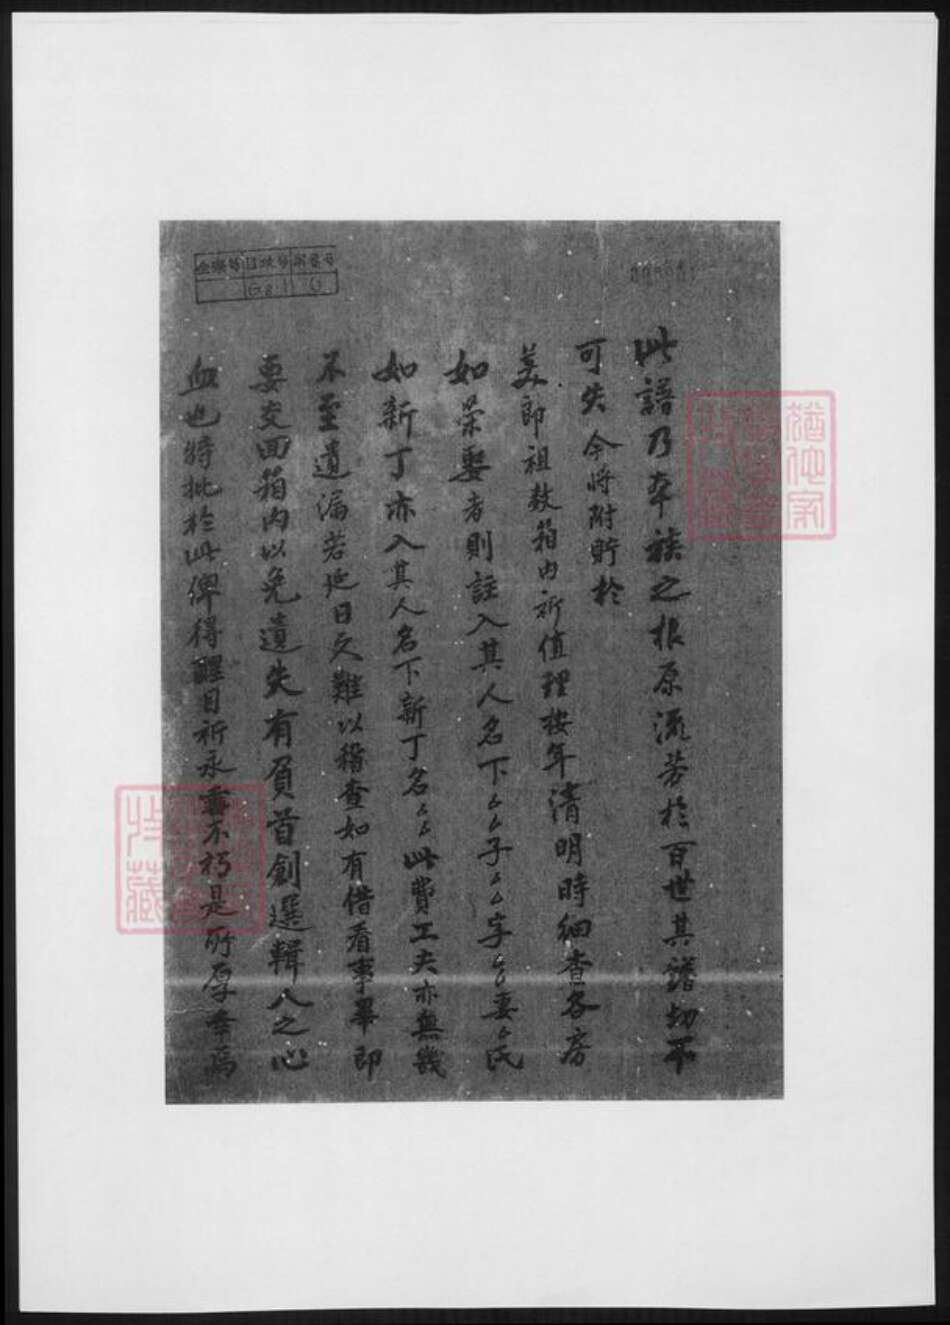 此譜乃本族之根原流芳於百世其譜切不
可失今將附貯於
美郎祖数箱内祈值理按年清明時細查各房
如榮娶者則註入其人名下厶厶子厶厶字厶厶妻厶氏
如新丁亦入其人名下新丁名厶厶此費工夫亦無幾
不至遺漏若延日久難以稽查如有借看事畢即
要交回箱内以免遺失有負首創選輯人之心
血也特批於此俾得醒目祈永垂不朽是所厚幸焉
特藏